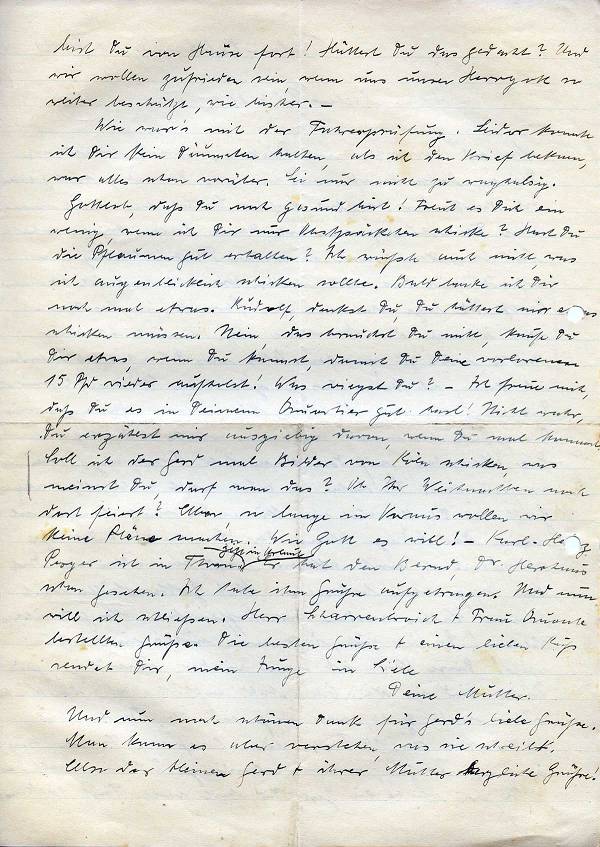 bist Du von Hause fort! Hättest Du das gedacht? Und
wir wollen zufrieden sein, wenn uns unser Herrgott so
weiter beschützt, wie bisher. –
Wie war's mit der Fahrerprüfung. Leider konnte
ich Dir kein Däumchen halten, als ich den Brief bekam,
war alles schon vorüber. Sei nur nicht zu waghalsig.
Gottlob, daß Du noch gesund bist! Freut es Dich ein
wenig, wenn ich Dir nur Obstpäckchen schicke? Hast Du
die Pflaumen gut erhalten? Ich wüßte auch nicht, was
ich augenblicklich schicken sollte. Bald backe ich Dir
noch mal etwas. Rudolf, denkst Du, Du hättest mir etwas
schicken müssen. Nein, das brauchst Du nicht, kaufe Du
Dir etwas, wenn Du kannst, damit Du Deine verlorenen
15 Pfd wieder aufholst! Was wiegst Du? – Ich freue mich,
daß Du es in Deinem Quartier gut hast! Nicht wahr,
Du erzählst mir ausgiebig davon, wenn Du mal kommst.
Soll ich der Gerd mal Bilder von Köln schicken, was
meinst Du, darf man das? Ob Ihr Weihnachten noch
dort feiert? Aber so lange im Voraus wollen wir
keine Pläne machen. Wie Gott es will! – Karl-Heinz
jetzt in Urlaub
ist in Er hat den Bernd, Dr. Hertens
schon gesehen. Ich habe ihm Grüße aufgetragen. Und nun
will ich schließen. Herr Scharrenbroich + Frau
bestellten Grüße. Die besten Grüße + einen lieben Kuß
sendet Dir, mein Junge in Liebe
Deine Mutter.
Und nun noch schönen Dank für Gerd's liebe Grüße.
Man kann es aber verstehen, was sie schreibt.
Also der kleinen Gerd + ihrer Mutter herzliche Grüße!